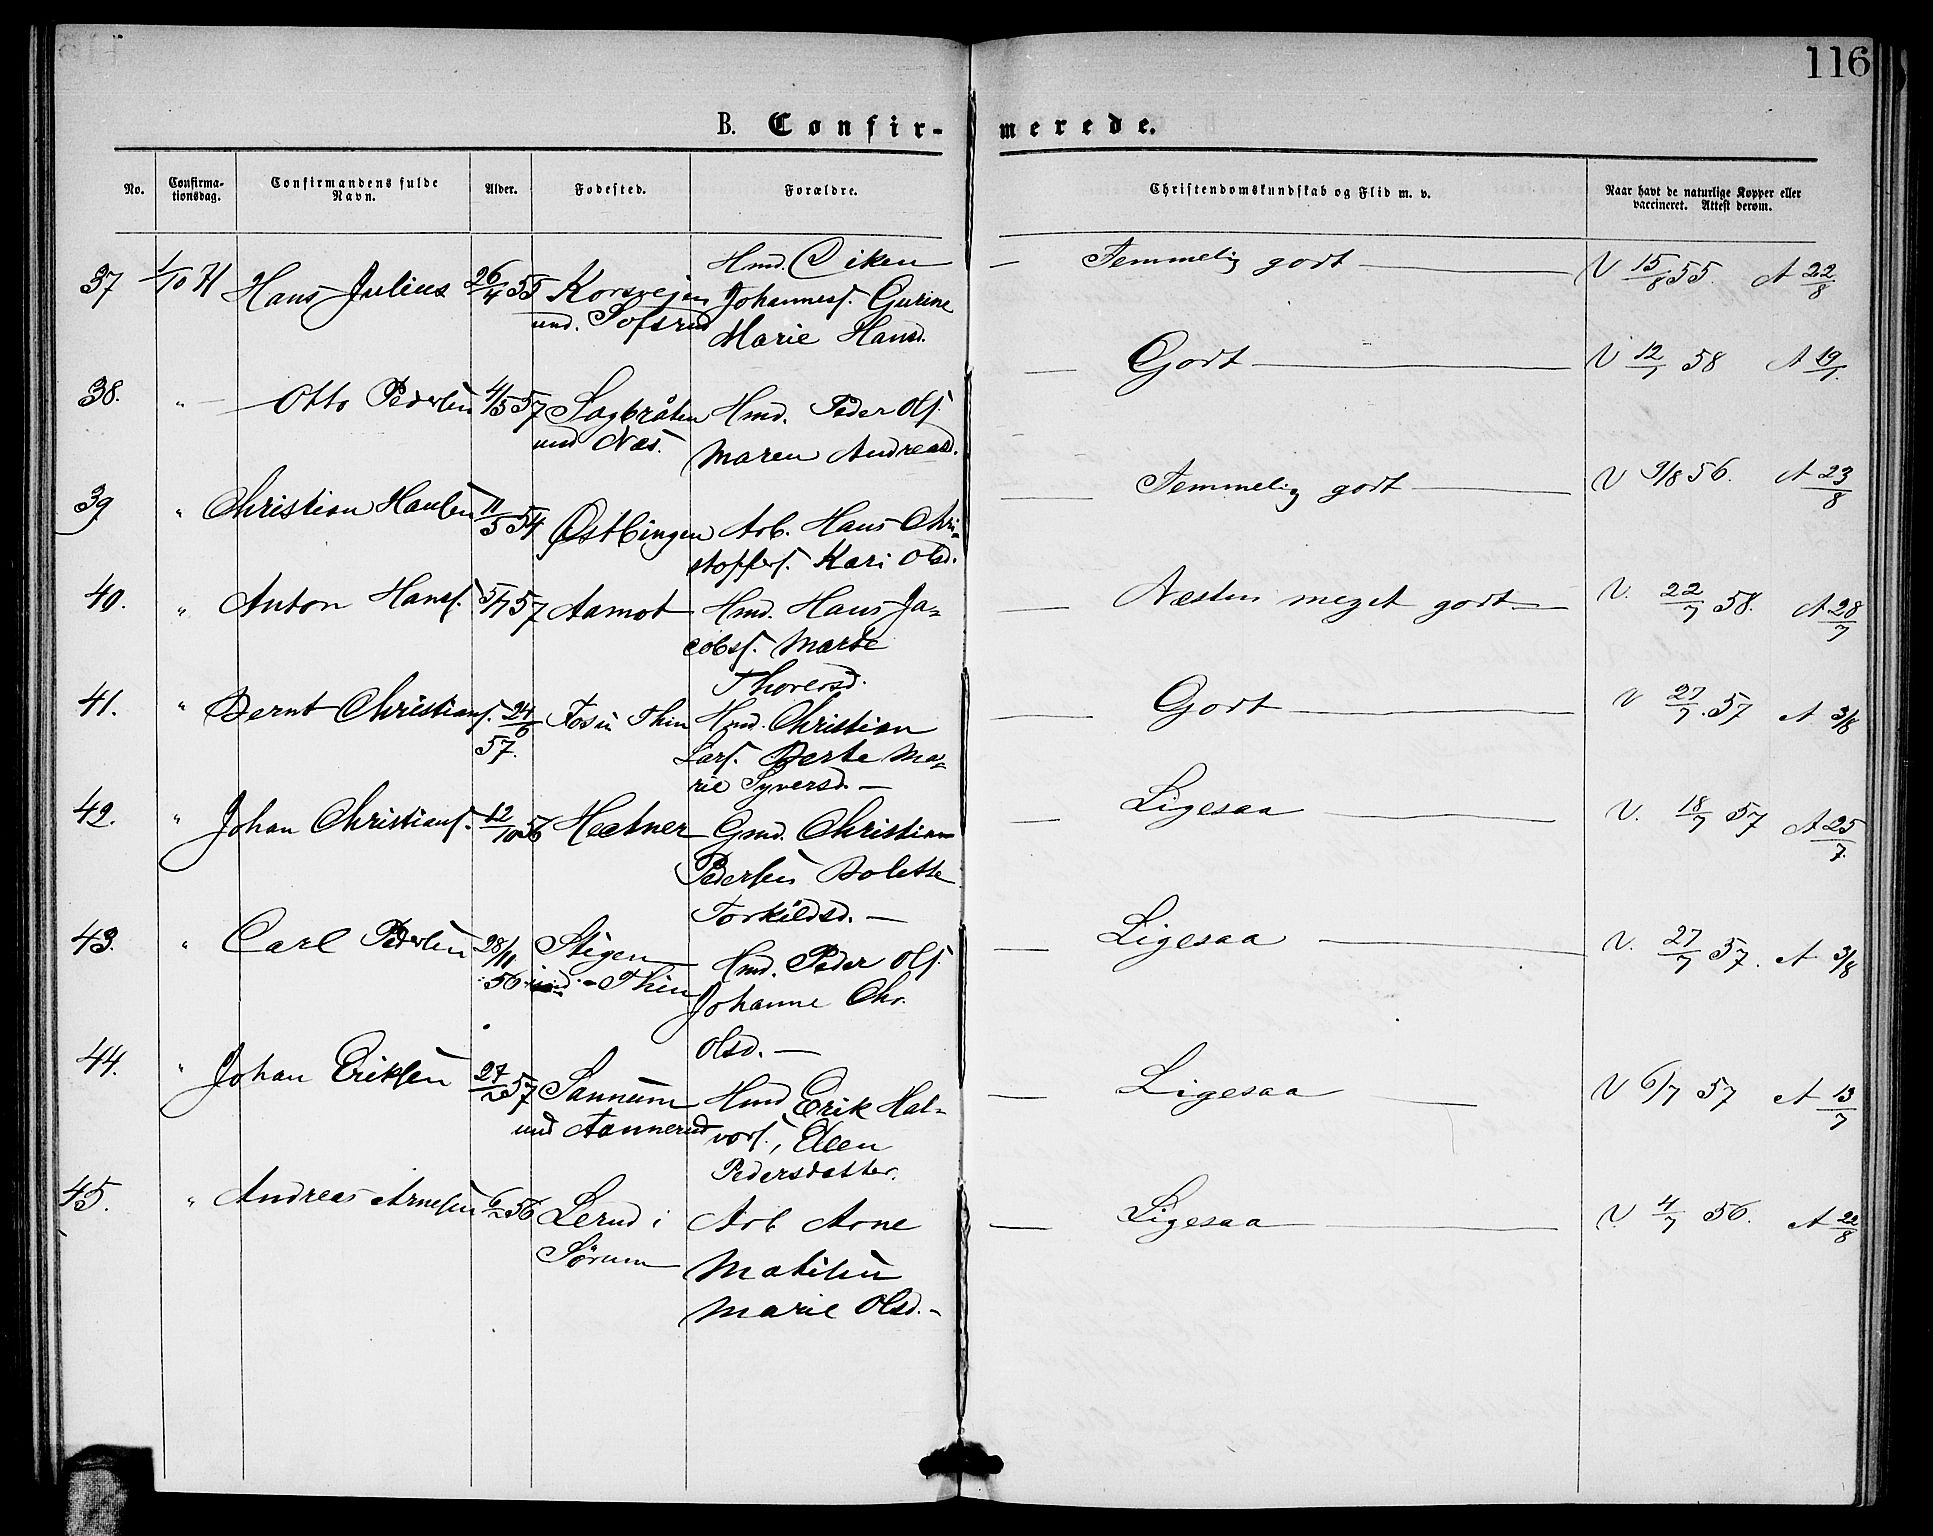 116
B. Confir- merede.
No. Confirma-tionsdag. Confirmandens fulde Navn. Alder. Fødested. Forældre. Christendomskundskab og Flid m. v. Naar havt de naturlige Kopper eller vaccineret. Attest derom.
37 1/10 71 Hans Julius 26/4 55 Korsvejen und. Tofsrud Hmd. Eiken Johannesf. Gurine Marie Hansd. — Temmelig godt — V 15/8 55. A 22/8
38. " Otto Pedersen 4/5 57 Sagbråten und Næs. Hmd. Peder Olf. Maren Andreasd. — Godt — V 12/7 58 A 19/7.
39 " Christian Hansen 11/5 54 Østbingen Arb. Hans Chri-stoffersf. Kari Olsd. — Temmelig godt — V 9/8 56. A 23/8
40. " Anton Hansf. 5/7 57 Aamot Hmd. Hans Ja-cobsf. Marte Thorersd. — Næsten meget godt — V. 22/7 58. A 28/7
41. " Bernt Christiansf. 24/6 57. Fosin Thin Hmd. Christian Larsf. Berte Ma-rie Syversd. — Godt — V 27/7. 57 A 3/8
42. " Johan Christiansf. 12/10 56 Hectner Gmd. Christian Pedersen Bolette Torkildsd. — Ligesaa — V. 18/7 57 A 25/7.
43. " Carl Pedersen 28/11 56 Stigen und. Thin Hmd. Peder Olf. Johanne Chr. Olsd. — Ligesaa — V. 27/7 57. A 3/8
44. " Johan Eriksen 27/2 57 Sannum und Aannerud Hmd Erik Hal-vorsf., Elen Pedersdatter. — Ligesaa — V 6/7 57 A 13/7
45. " Andreas Arnesen 6/2 56 Lerud i Sørum Arb Arne Matisen Marie Olsd. — Ligesaa — V. 4/7 56. A 22/8